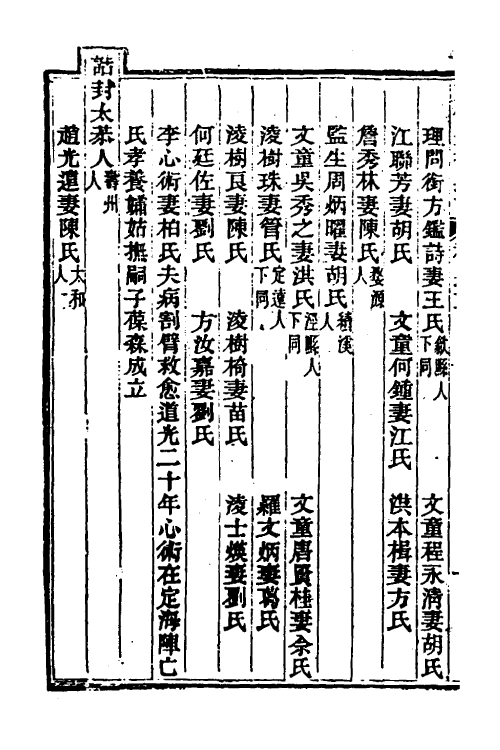 理問銜方鑑詩妻王氏歙縣人下同 文童程永清妻胡氏
江聯芳妻胡氏 文童何鍾妻江氏 洪本楫妻方氏
詹秀林妻陳氏婺源人
監生周炳曜妻胡氏績溪人
文童吳秀之妻洪氏涇縣人下同 文童唐賢桂妻佘氏
淩樹珠妻管氏定遠人下同 羅文炳妻葛氏
淩樹良妻陳氏 淩樹椅妻苗氏 淩士煐妻劉氏
何廷佐妻劉氏 方汝嘉妻劉氏
李心術妻柏氏夫病割臂救愈道光二十年心術在定海陣亡
氏孝養孀姑撫嗣子葆森成立
誥封太恭人壽州人
趙光達妻陳氏太和人